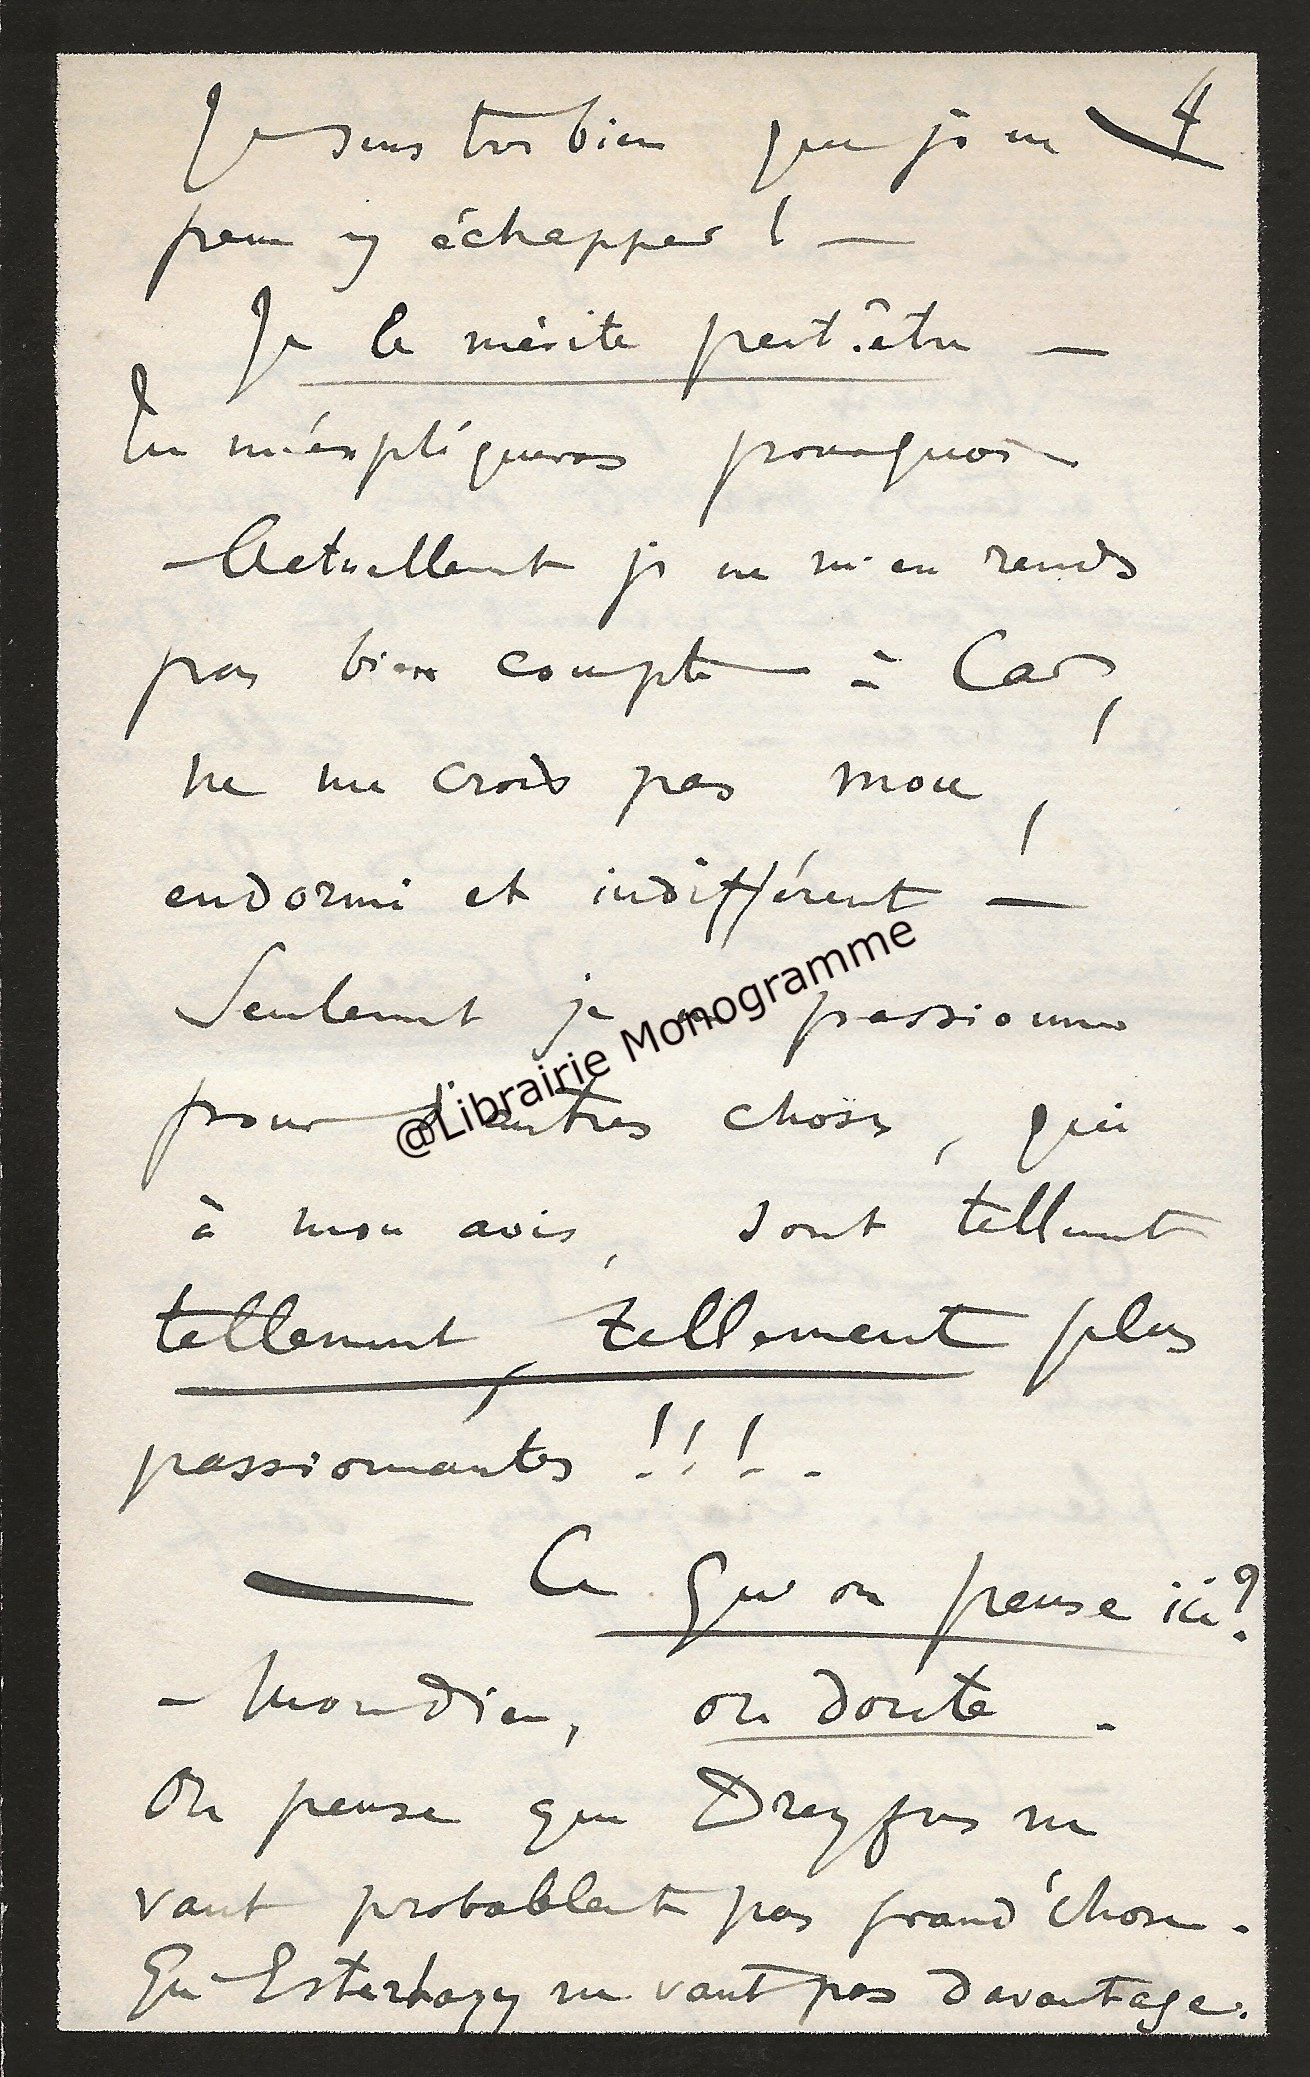 Je sens très bien que je ne 4
peux y échapper ! —
Je le mérite peut-être —
Tu m'expliqueras pourquoi
— Actuellement je ne m'en rends
pas bien compte — Car,
ne me crois pas mou,
endormi et indifférent —
Seulement je me passionne
pour d'autres choses, qui
à mon avis, sont tellement
tellement, tellement plus
passionnantes !!! .
— Ce qu'on pense ici ?
— Mon dieu, on doute .
On pense que Dreyfus ne
vaut probablement pas grand'chose .
Qu'Esterhazy ne vaut pas davantage .
@Librairie Monogramme